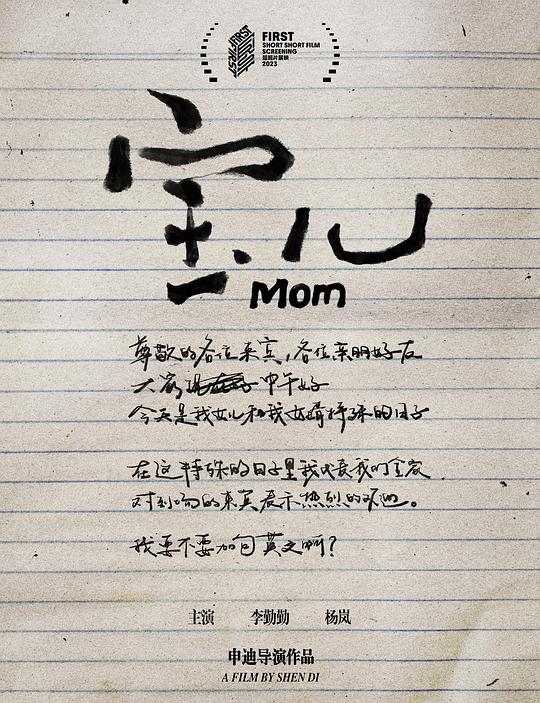 FIRST
SHORT SHORT FILM
SCREENING
超短片展映
2023
宝儿
Mom
尊敬的各位来宾，各位亲朋好友
大家中午好
今天是我女儿和我女婿特殊的日子
在这特殊的日子里我代表我们全家
对到场的来宾表示热烈的欢迎。
我要不要加句英文啊？
主演 李勤勤 杨岚
申迪导演作品
A FILM BY SHEN DI